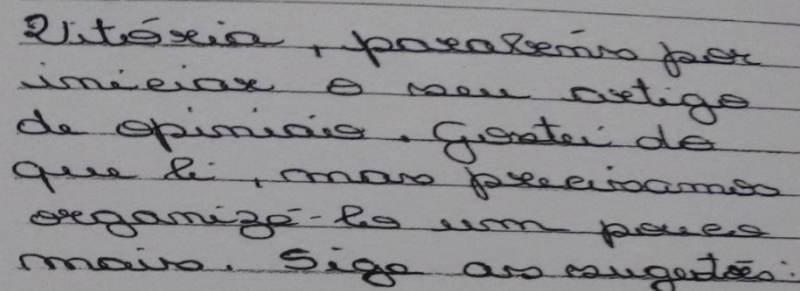 Vitória, parabéns por
iniciar o seu artigo
de opinião. Gostei do
que li, mas precisamos
organizá-lo um pouco
mais. Siga as sugestões: